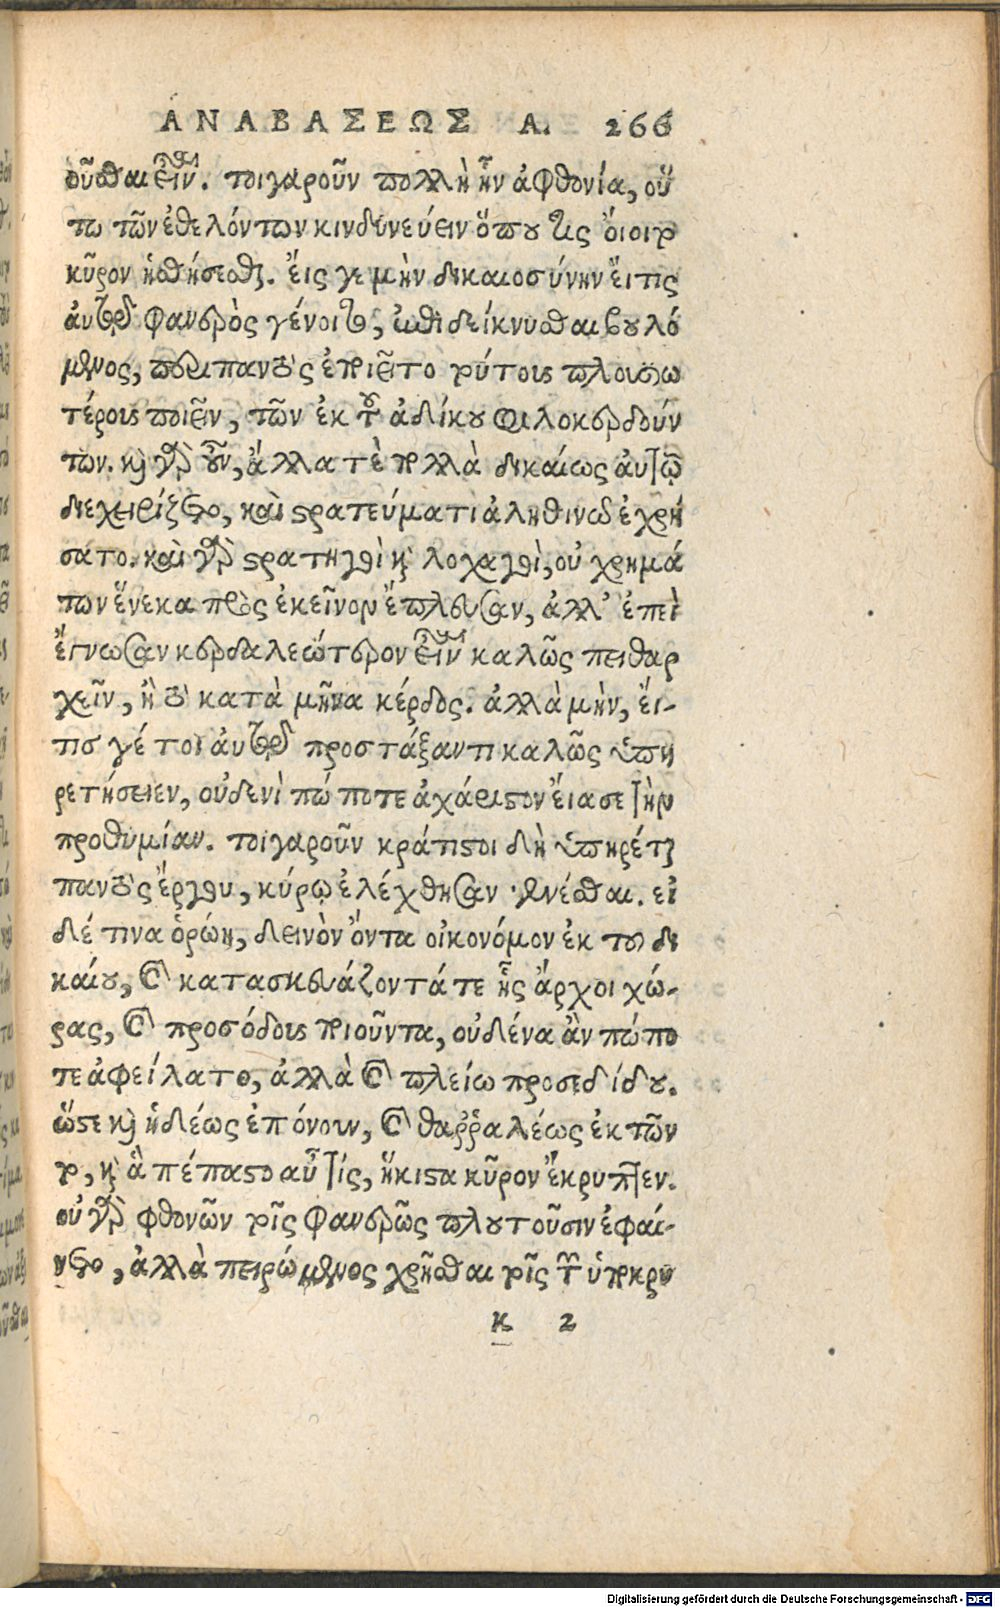 ΑΝΑΒΑΣΕΩΣ Α. 266
οῦσθαι εἶναι. τοιγαροῦν πολλὴ ἦν ἀφθονία, οὕ
τω τῶν ἐθελόντων κινδυνεύειν ὅπου τις ὄιοιτο
κῦρον ἠσθήσεσθαι. ἔις γε μὴν δικαιοσύνην ἔιτις
ἀυτῷ φανερὸς γένοιτο, ἐπιδείκνυσθαι βουλό
μενος, περὶ παντὸς ἐποιεῖτο τούτους πλουσιω
τέρους ποιεῖν, τῶν ἐκ τοῦ ἀδίκου φιλοκερδούν
των. καὶ γὰρ οὖν, ἄλλα τὲ πολλὰ δικαίως ἀυτῷ
διεχειρίζετο, καὶ στρατεύματι ἀληθινῷ ἐχρή
σατο. καὶ γὰρ στρατηγοὶ καὶ λοχαγοὶ, οὐ χρημά
των ἕνεκα πρὸς ἐκεῖνον ἔπλευσαν, ἀλλ' ἐπεὶ
ἔγνωσαν κερδαλεώτερον εἶναι καλῶς πειθαρ
χεῖν, ἢ τὸ κατὰ μῆνα κέρδος. ἀλλὰ μὴν, ἔι-
τις γέ τοι ἀυτῷ προστάξαντι καλῶς ὑπη
ρετήσειεν, οὐδενὶ πώποτε ἀχάριστον ἔιασε τὴν
προθυμίαν. τοιγαροῦν κράτιστοι δὴ ὑπηρέται
παντὸς ἔργου, κύρῳ ἐλέχθησαν γενέσθαι. εἰ
δέ τινα ὁρώη, δεινὸν ὄντα οἰκονόμον ἐκ τοῦ δι
καίου, καὶ κατασκευάζοντά τε ἧς ἄρχοι χώ-
ρας, καὶ προσόδους ποιοῦντα, οὐδένα ἂν πώπο
τε ἀφείλατο, ἀλλὰ καὶ πλείω προσεδίδου.
ὥστε καὶ ἡδέως ἐπόνουν, καὶ θαῤῥαλέως ἐκτῶν
το, καὶ ἃ πέπαστο αὖ τίς, ἥκιστα κῦρον ἔκρυπτεν.
οὐ γὰρ φθονῶν τοῖς φανερῶς πλουτοῦσιν ἐφαί-
νετο, ἀλλὰ πειρώμενος χρῆσθαι τοῖς τῶν ἀποκρυ
κ 2
Digitalisierung gefördert durch die Deutsche Forschungsgemeinschaft - DFG